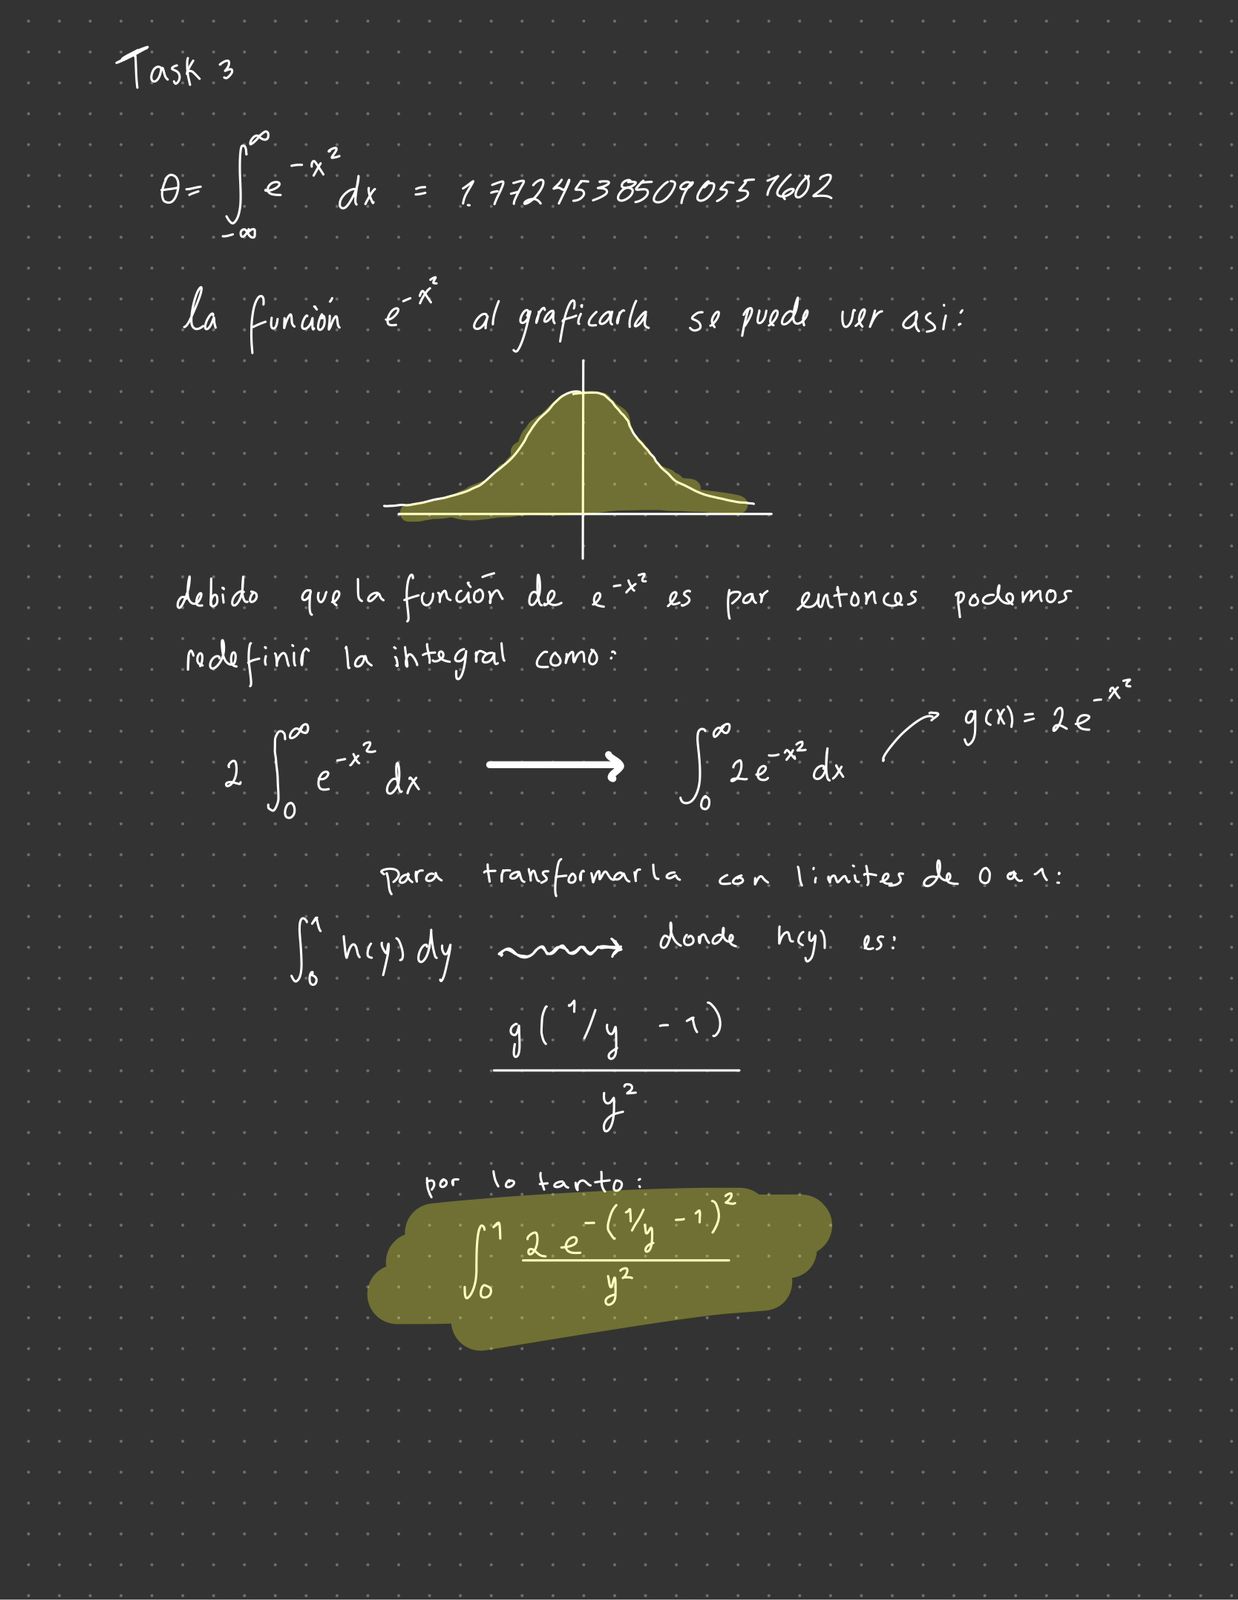 Task 3
θ = ∫_{-∞}^{∞} e^{-x²} dx = 1.7724538509055 1602
la función e^{-x²} al graficarla se puede ver asi:
debido que la función de e^{-x²} es par entonces podemos
redefinir la integral como:
2 ∫_0^∞ e^{-x²} dx → ∫_0^∞ 2e^{-x²} dx → g(x) = 2e^{-x²}
para transformarla con limites de 0 a 1:
∫_0^1 h(y) dy → donde h(y) es:
g(1/y - 1)
y²
por lo tanto:
∫_0^1 2e^{-(1/y - 1)²}
y²